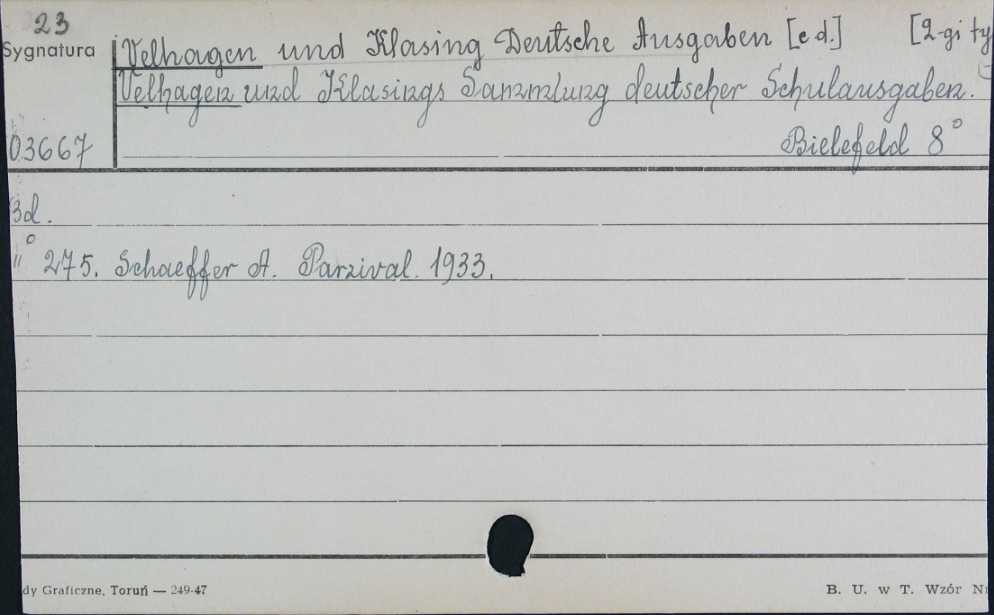 23
Sygnatura
Velhagen und Klasing Deutsche Ausgaben [ed.] [2-gi ty
Velhagen und Klasings Sammlung deutscher Schulausgaben.
03667 Bielefeld 8°
Bd.
275. Schaeffer A. Parzival. 1933.
dy Graficzne, Toruń — 249-47
B. U. w T. Wzór N